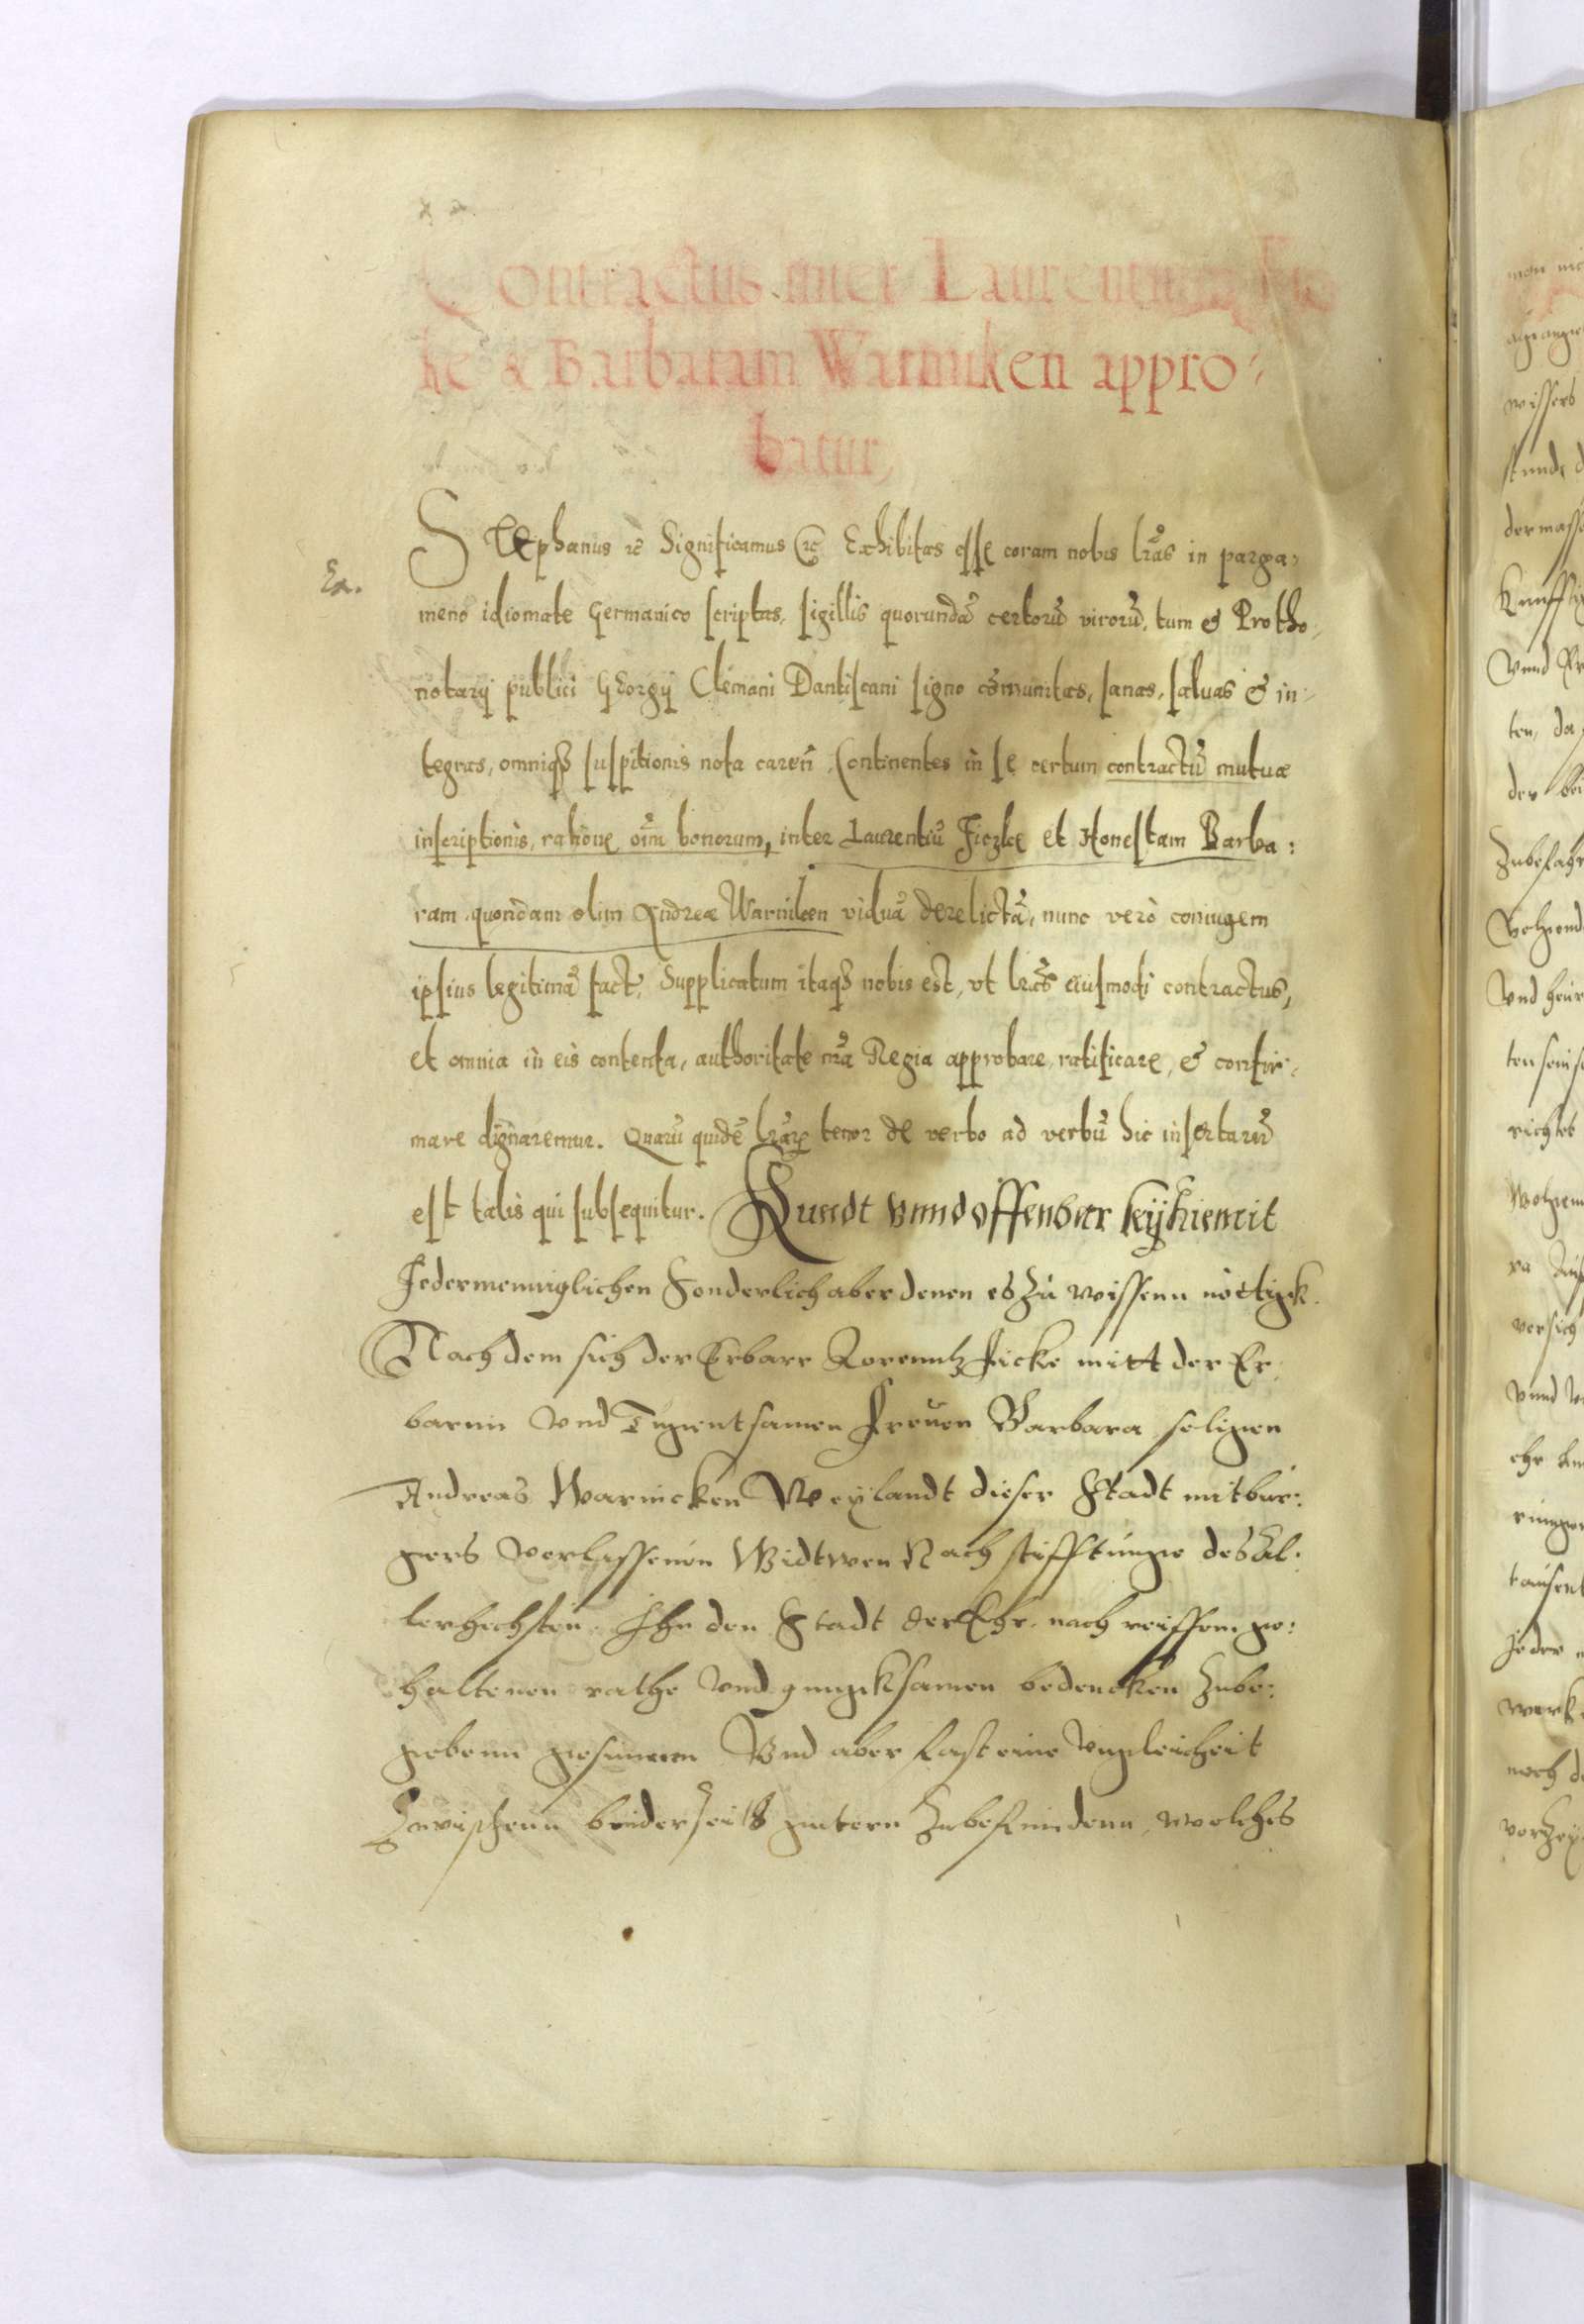 Contractus inter Laurentium Fic
ke & Barbaram Warniken appro
batur
STEphanus etc Significamus etc Exhibitas esse coram nobis lrãs in parga,
Ex.
meno idiomate Germanico scriptas, sigillis quorundã certorũ virorũ, tum & Protho
notarij publici GEorgij Clemani Dantiscani signo cõmunitas, sanas, saluas & in
tegras, omniq3 suspitionis nota careñ, Continentes in se certum contractũ mutuæ
inscriptionis, ratione oĩm bonorum, inter Laurentiũ Ficzke et Honestam Barba:
ram quondam olim Andreæ Warniken viduã derelictã, nunc verò coniugem
ipsius legitimã fact, Supplicatum itaq3 nobis est, vt lrãs eiusmodi contractus,
et omnia in eis contenta, authoritate nrã Regia approbare, ratificare, & confir
mare dignaremur. Quarũ quidẽ lrãr tenor de verbo ad verbũ hic insertarũ
est talis qui subsequitur. Kundt vnnd offenbar seij hiemit
Jedermenniglichen Sonderlich aber denen es zu wissenn nöttigk.
Nach dem sich der Erbarr Lorenntz Ficke mitt der Er
barnn vnd Tugentsamen Frauen Barbara seligen
Andreas Warnicken Weylandt dieser Stadt mitbur:
gers verlassenen Widtwen Nach stifftunge des Al:
lerhechsten. Ihn den Stadt der Ehe, nach reiffem ge:
haltenen rathe vnd gnugksamen bedencken zube:
gebenn gesinnen Vnd aber fast eine vngleicheit
Zwischenn beiderseits guttern zubefinndenn, welches